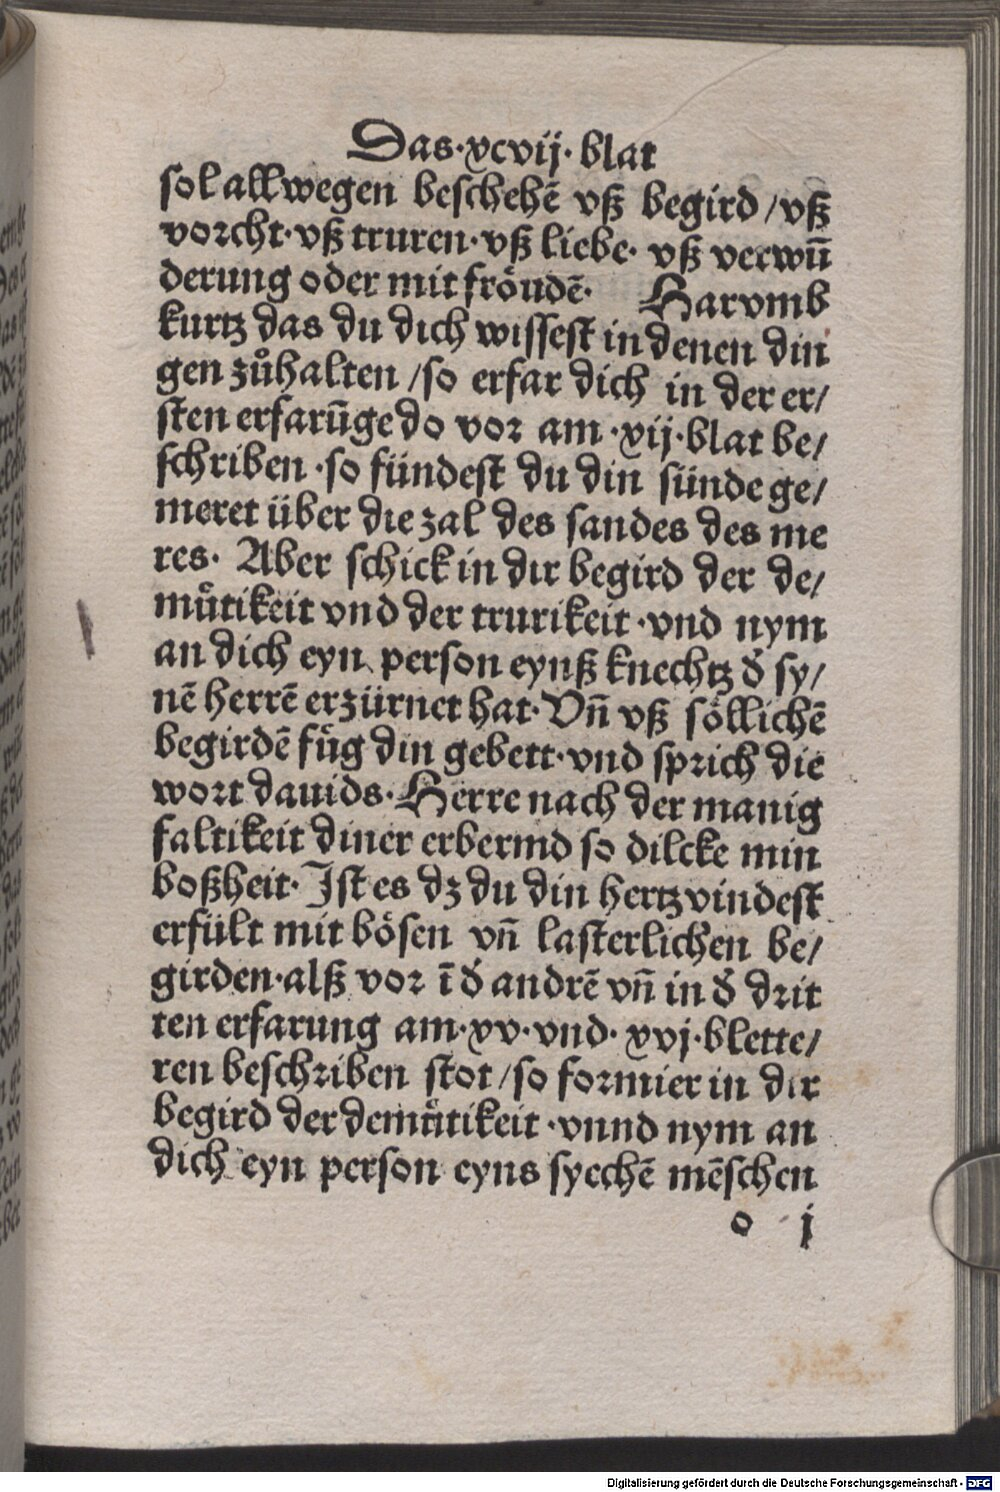 Das·xcvij·blat
sol allwegen beschehē vß begird / vß
vorcht·vß truren·vß liebe·vß verwū
derung oder mit frőudē· Harvmb
kurtz das du dich wissest in denen din
gen zůhalten / so erfar dich in der er/
sten erfarūge do vor am·xij·blat be/
schriben·so fündest du din sünde ge/
meret über die zal des sandes des me
res· Aber schick in dir begird der de/
můtikeit vnd der trurikeit·vnd nym
an dich eyn person eynß knechtz d̕ sy/
nē herrē erzürnet hat·Vn̄ vß sőllichē
begirdē fůg din gebett·vnd sprich die
wort dauids·Herre nach der manig
faltikeit diner erbermd so dilcke min
boßheit·Ist es dz du din hertz vindest
erfült mit bősen vn̄ lasterlichen be/
girden·alß vor ī d̕ andrē vn̄ in d̕ drit
ten erfarung am·xv·vnd·xvj·blette/
ren beschriben stot / so formier in dir
begird der demůtikeit·vnnd nym an
dich eyn person eyns syechē mēschen
o j
Digitalisierung gefördert durch die Deutsche Forschungsgemeinschaft - DFG